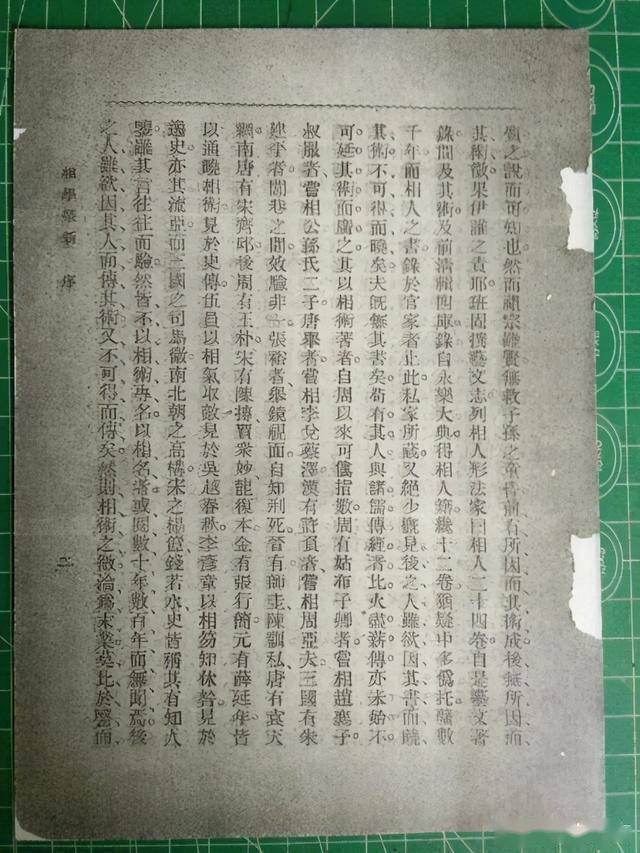 之說而可知也然而祖宗雖賢無救子孫之童昏前有所因而其術成後無所因而
其術微果伊誰之責耶班固撰藝文志列相人形法家曰相人二十四卷自是藝文著
錄間及其術及前清輯四庫錄自永樂大典得相人篇幾十二卷猶疑中多僞托蓋數
千年而相人之書錄於官家者止此私家所藏又絕少觀見後之人雖欲因其書而曉、
其術不可得而曉矣夫旣無其書矣苟有其人與諸儒傳經者比火盡薪傳亦未始不
可延其術而廣之其以相術著者自周以來可僂指數周有姑布子卿者嘗相趙襄子。
叔服者嘗相公孫氏二子唐舉者嘗相李兌蔡澤漢有許負者嘗相周亞夫三國有朱
建平者閭巷之間效驗非一張裕者舉鏡視面自知刑死晉有師圭陳訓私唐有袁天
綱南唐有宋齊邱後周有王朴宋有陳摶賈衆妙龍復本金有張行簡元有薛延年皆
以通曉相術見於史傳伍員以相氣取敵見於吳越春秋李彥章以相笏知休咎見於
逸史亦其流亞而三國之司馬徽南北朝之高構宋之楊簋錢若水史皆稱其有知人
鑒雖其言往往而驗然皆不以相術專名以相名者或閱數十年數百年而無聞焉後
之人雖欲因其人而傳其術又不可得而傳矣然則相術之微淪爲末業莫比於醫而
相學集新 序
二